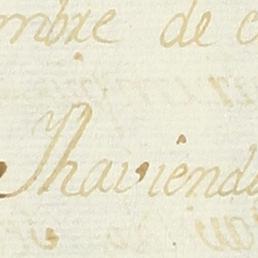 mbre de c
Jhaviend